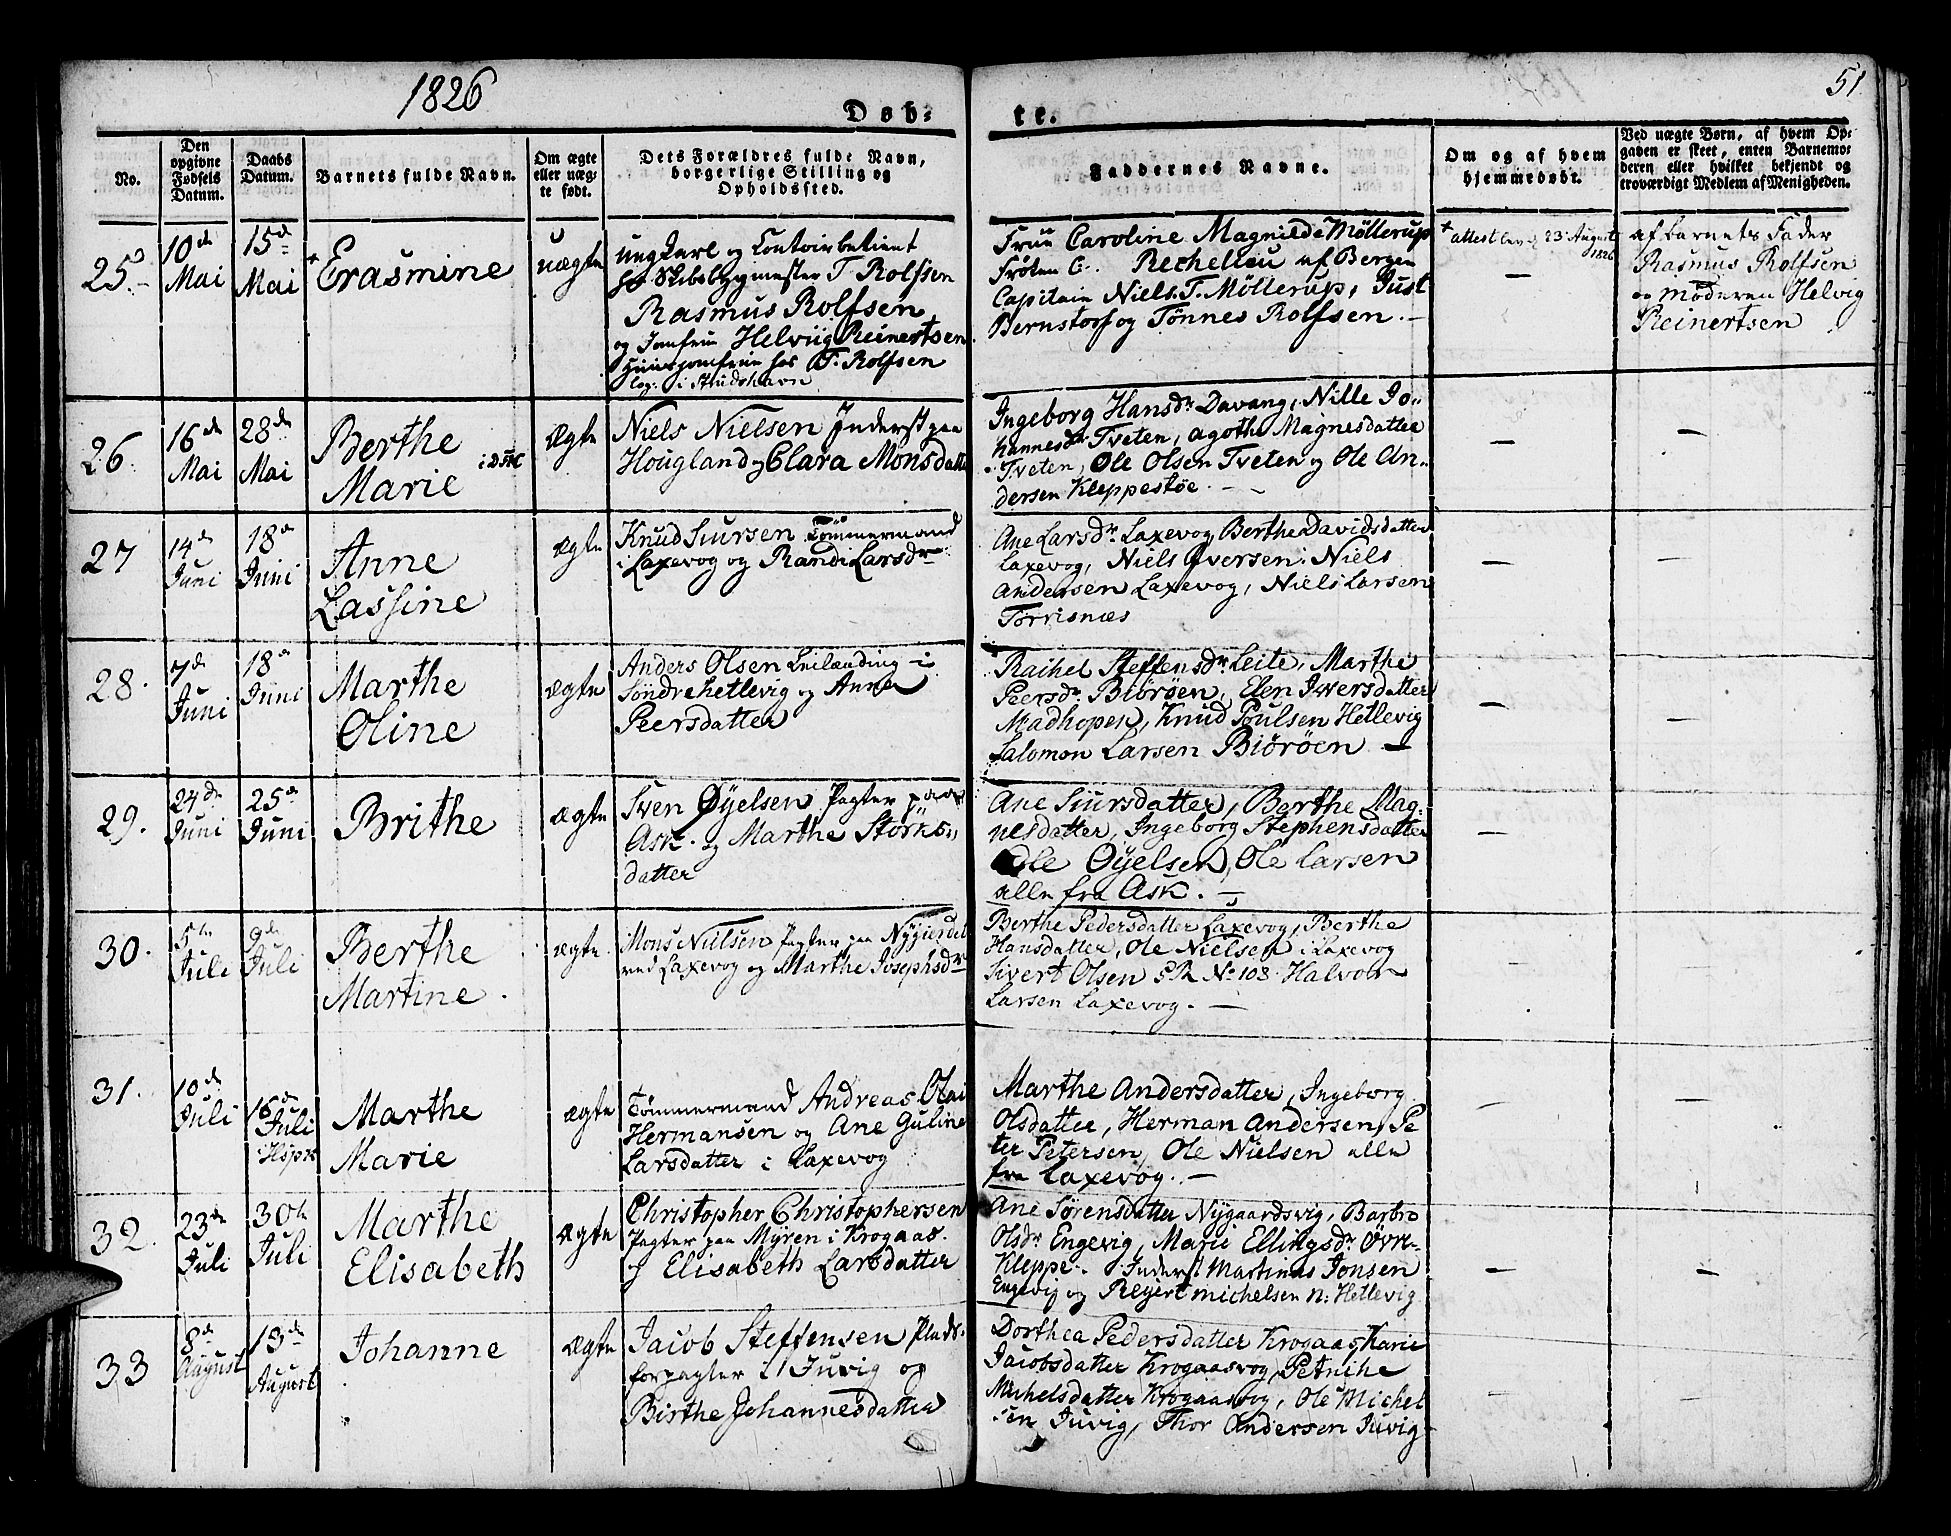 1826
51
Døb-
te.
No.
Den opgivne Fødsels Datum.
Daabs Datum.
Barnets fulde Navn.
Om ægte eller uægte født.
Dets Forældres fulde Navn, borgerlige Stilling og Opholdssted.
Faddernes Navne.
Om og af hvem hjemmedøbt.
Ved uægte Børn, af hvem Opgaven er skeet, enten Barnemoderen eller hvilket bekjendt og troværdigt Medlem af Menigheden.
25.
10de Mai
15de Mai
+ Erasmine
uægte
ungkarl og Contoirbetient
hos Skibsbygmester T. Rolfsen
Rasmus Rolfsen
og Jomfru Helvig Reinertsen
Huusjomfrue hos T. Rolfsen
log: i Strudshavn
Frue Caroline Magnilde Möllerup
Frøken C. Rechelieu af Bergen
Capitain Niels T. Möllerup, Just
Bernstorf og Tönnes Rolfsen.
+ attest lev. d 23 August 1826
af Barnets Fader
Rasmus Rolfsen
og Moderen Helvig
Reinertsen
26.
16de Mai
28de Mai
Berthe
Marie
Ægte
Niels Nielsen Inderst paa
Hougland og Clara Monsdatter
Ingeborg Hansdr Davang, Nille Jo-
hannesdr Tveten, Agothe Magnesdatter
Tveten, Ole Olsen Tveten og Ole An-
dersen Kleppestöe.
27
14de Juni
18de Juni
Anne
Lassine
Ægte
Knud Siursen Tömmermand
i Laxevog og Randi Larsdr
Ane Larsdr Laxevog, Berthe Davidsdatter
Laxevog, Niels Iversen, Niels
Andersen Laxevog, Niels Larsen
Torrisnæs
28.
7de Juni
18de Juni
Marthe
Oline
Ægte
Anders Olsen Leilænding i
Søndre Hetlevig og Anna
Peersdatter
Rachel Steffensdr Leite, Marthe
Peersdr Biöröen, Elen Iversdatter
Madhopen, Knud Poulsen Hetlevig
Salomon Larsen Biöröen
29.
24de Juni
25de Juni
Brithe
Ægte
Sven Øyelsen Pagter paa
Ask og Marthe Storks-
datter
Ane Siursdatter, Berthe Mag-
nesdatter, Ingeborg Stephensdatter
Ole Øyelsen, Ole Larsen
alle fra Ask.
30.
5te Juli
9de Juli
Berthe
Martine.
ægte.
Mons Nielsen Pagter paa Nygierdet
ved Laxevog og Marthe Josephsdr
Berthe Pedersdatter Laxevog, Berthe
Hansdatter, Ole Nielsen i Laxevog
Sivert Olsen SR No 103 Halvor
Larsen Laxevog.
31.
10de Juli
16de Juli
Marthe
Marie
Ægte
Tömmermand Andreas Olai
Hermansen og Ane Guline
Larsdatter i Laxevog
Marthe Andersdatter, Ingeborg
Olsdatter, Herman Andersen, Pe
ter Petersen, Ole Nielsen alle
fra Laxevog.
32.
23de Juli
30te Juli
Marthe
Elisabeth
Ægte
Christopher Christophersen
Pagter paa Myren i Krogaas.
og Elisabeth Larsdatter
Ane Sørensdatter Nygaardsvig, Barbro
Olsdr Engevig, Marie Ellingsdr Övre-
Kleppe. Inderst Martinus Jonsen
Engevig og Reyert Michelsen N: Hetlevig
33
8de August
13de August
Johanne
Ægte
Jacob Steffensen Plads-
forpagter i Juvig og
Birthe Johannesdatter
Dorthea Pedersdatter Krogaas, Karie
Jacobsdatter Krogaasvog, Petnihe
Michelsdatter Krogaasvog, Ole Michel
sen Juvig, Thor Andersen Juvig